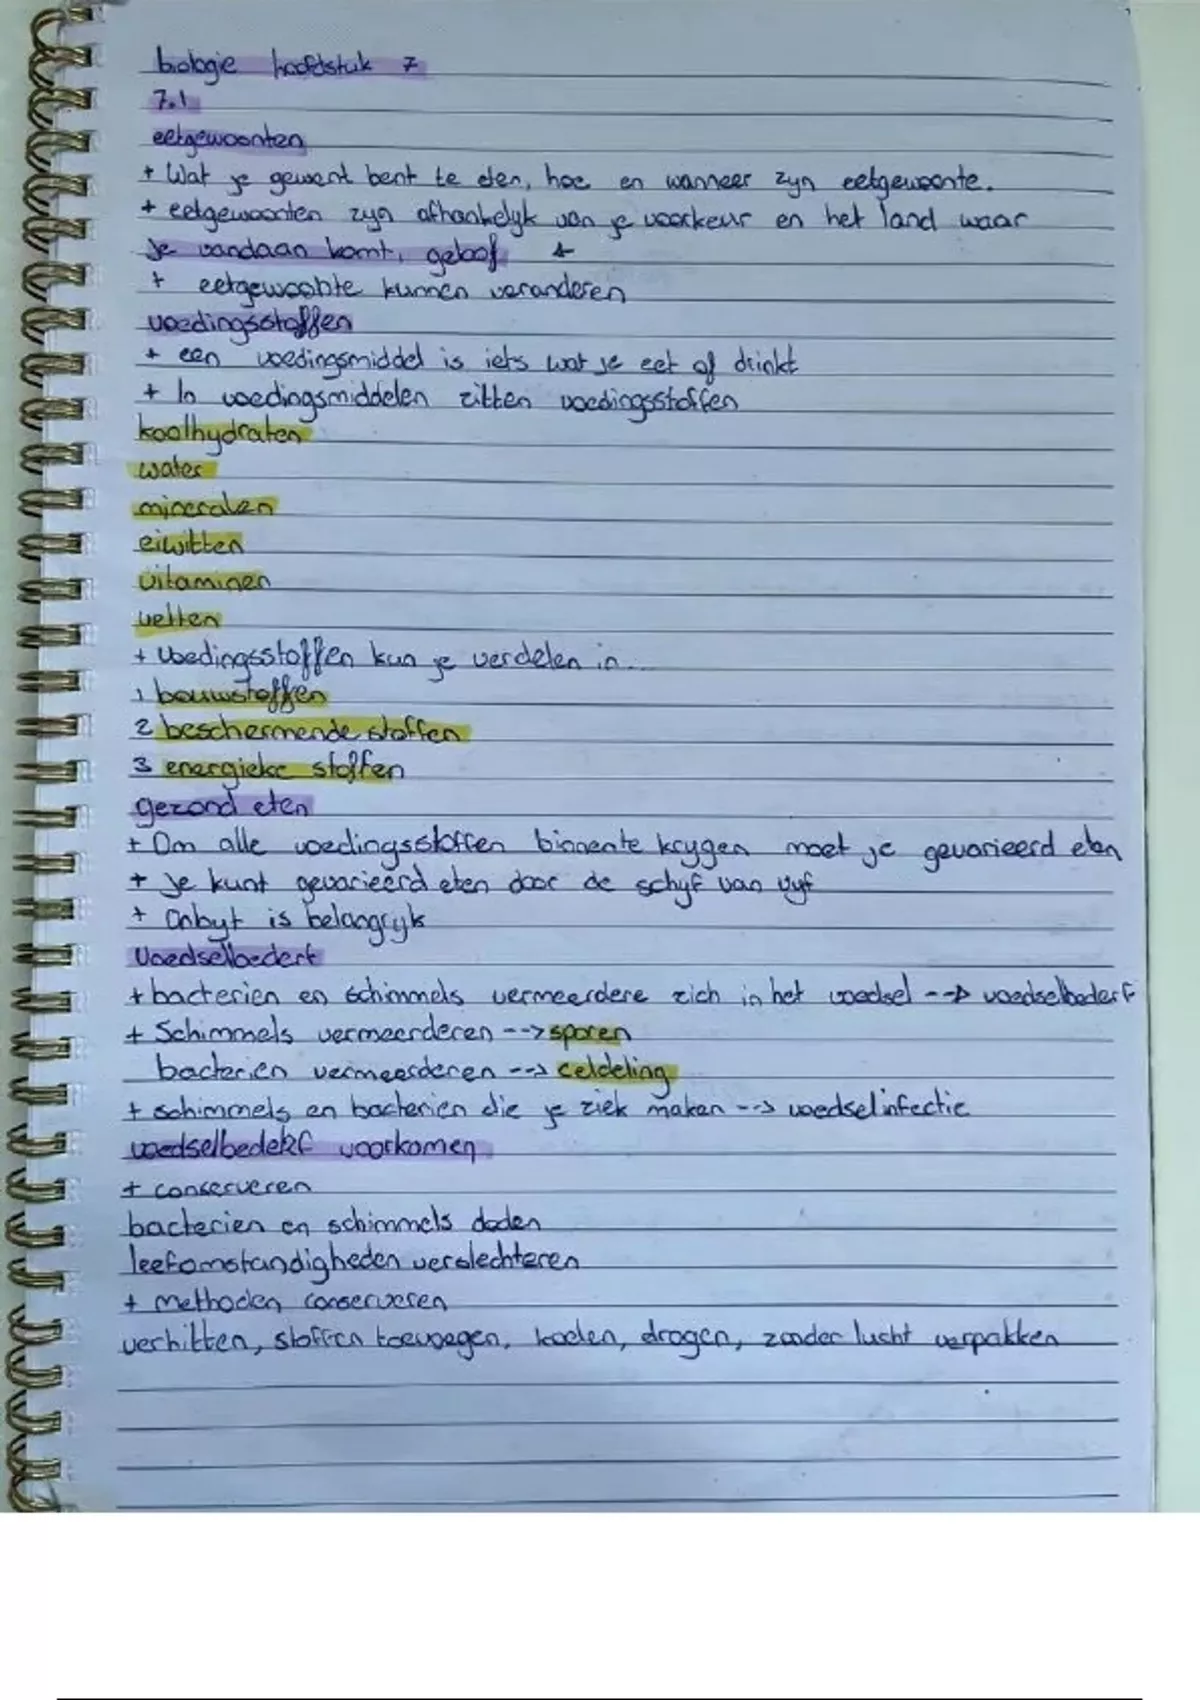 biologie hoofdstuk 7
7.1
eetgewoonten
+ Wat je gewent bent te eten, hoe en wanneer zyn eetgewoonte.
+ eetgewoonten zyn afhankelyk van je voorkeur en het land waar
je vandaan komt, geloof
+ eetgewoonte kunnen veranderen
voedingsstoffen
+ een voedingsmiddel is iets wat je eet of drinkt
+ In voedingsmiddelen zitten voedingsstoffen
koolhydraten
water
mineralen
eiwitten
vitaminen
vetten
+ voedingsstoffen kun je verdelen in...
1 bouwstoffen
2 beschermende stoffen
3 energieke stoffen
gezond eten
+ Om alle voedingsstoffen binnente krygen moet je gevarieerd eten
+ je kunt gevarieerd eten door de schyf van vyf
+ Onbyt is belangryk
Voedselbederf
+ bacterien en schimmels vermeerdere zich in het voedsel --> voedselbederf
+ Schimmels vermeerderen --> sporen
bacterien vermeerderen --> celdeling
+ schimmels en bacterien die je ziek maken --> voedselinfectie
voedselbederf voorkomen
+ conserveren
bacterien en schimmels doden
leefomstandigheden verslechteren
+ methoden conserveren
verhitten, stoffen toevoegen, koelen, drogen, zonder lucht verpakken